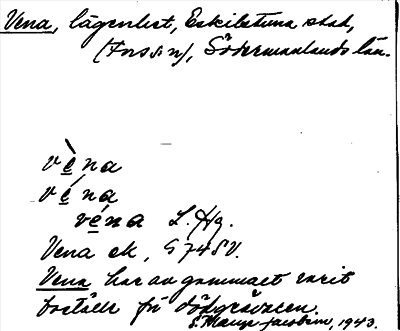 Vena, lägenhet, Eskilstuna stad,
(Fors sn), Södermanlands län.
vèna
véna
véna L. Hg.
Vena ek, G 74 SV.
Vena har av gammalt varit
boställe för dödgrävaren.
S. Maur Jacobson, 1943.